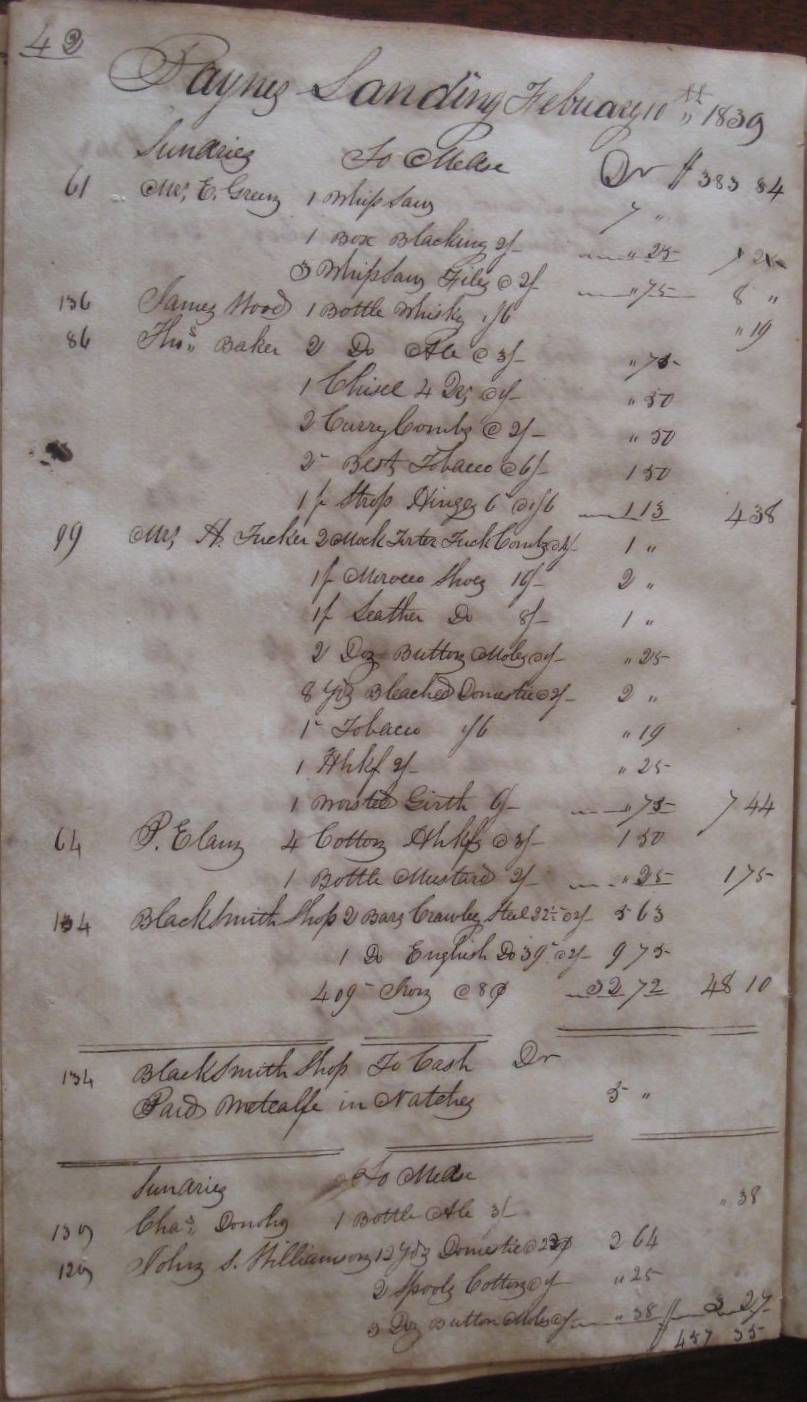 42
Paynes Landing February 10th 1839
Sundries To Mdse Dr $383 84
61 Mrs E. Green 1 Whip Saw 7 "
1 Box Blacking 2/- " 25
3 Whip Saw Files @ 2/- " 75 8 "
136 James Wood 1 Bottle Whisky 1/6 " 19
86 Thos. Baker 2 Do Ale @ 3/- " 75
1 Chisel 4/- " 50
2 Curry Combs @ 2/- " 50
2 Best Tobacco @ 6/- 1 50
1 p Strap Hinges 6 1 13 4 38
99 Mrs H. Tucker 2 Mock Torter Tuck Combs @ 4/- 1 "
1 p Morocco Shoes 16/- 2 "
1 p Leather Do 8/- 1 "
2 Doz Button Moles @ 1/- " 25
8 Yds Bleached Domestic @ 2/- 2 "
1 Tobacco 1/6 " 19
1 Hhkf 2/- " 25
1 Worsted Girth 6/- " 75 7 44
64 P. Elam 4 Cotton Hhkfs @ 3/- 1 50
1 Bottle Mustard 2/- " 25 1 75
134 Blacksmith Shop 2 Bars Crawley Steel 22½ @ 2/- 5 63
1 Do English Do 39 @ 2/- 9 75
409 Iron @ 8¢ 32 72 48 10
134 Blacksmith Shop To Cash Dr
Paid Metcalfe in Natchez 5 "
Sundries To Mdse
137 Chas. Donohy 1 Bottle Ale 3/- " 38
127 John S. Williamson 12 Yds Domestic @ 22¢ 2 64
2 Spools Cotton @ 1/- " 25
3 Doz Button Moles @ 1/- " 38 3 27
$457 35